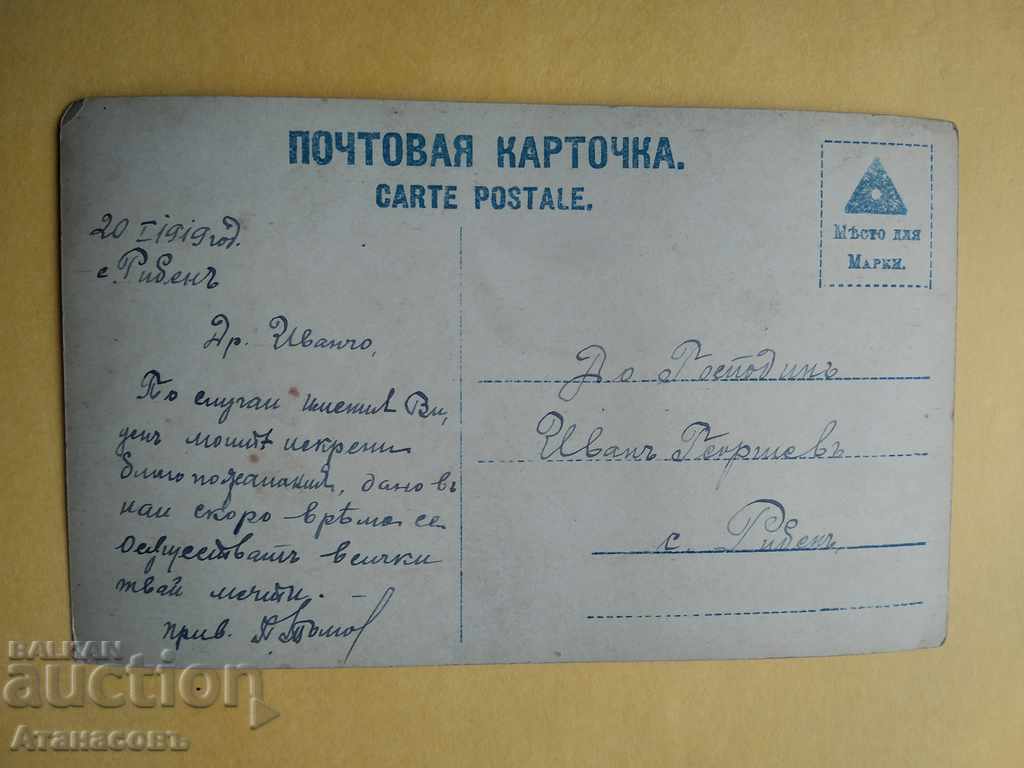 ПОЧТОВАЯ КАРТОЧКА.
CARTE POSTALE.
Мѣсто для
Марки.
20 I 1919 год.
с. Рибенъ
Др. Иванчо,
По случаи имения Ви
день моитѣ искрени
благопожелания, дано въ
наи скоро врѣме се
осѫществатъ всички
твай мечти. –
прив.
До Господинъ
Иванъ Георгиевъ
с. Рибенъ,
BALKAN
auction
Атанасовъ